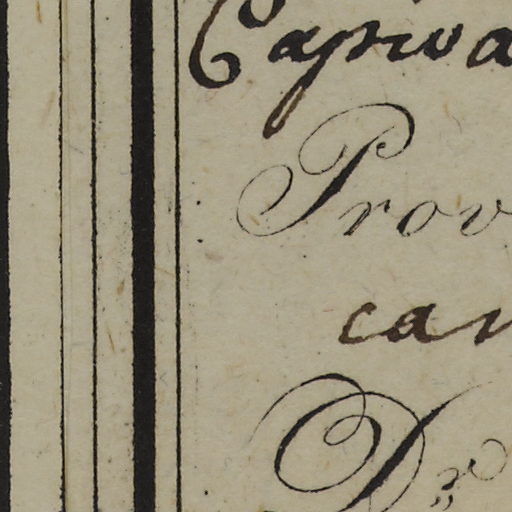 Capriva
Prov
can
Dr